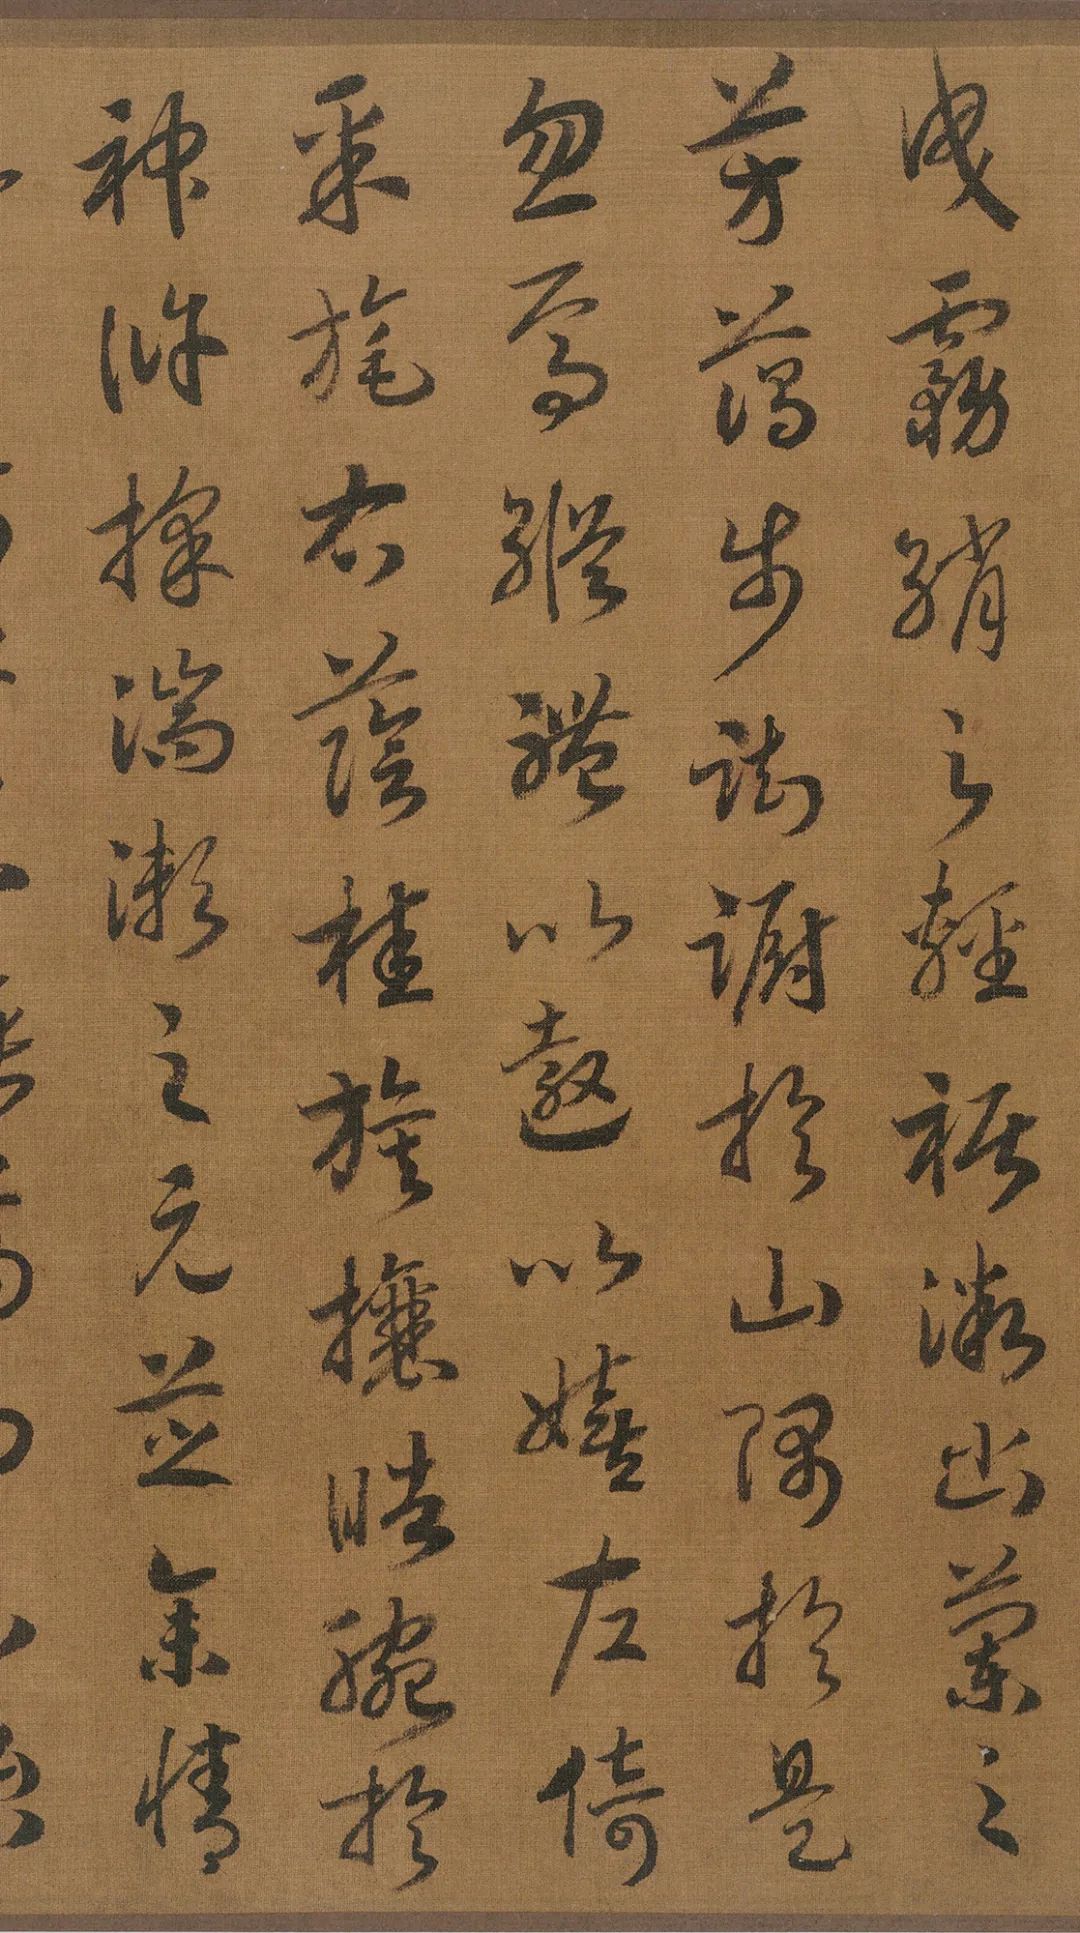 曳霧綃之輕裾微幽蘭之
芳藹步踟躕於山隅於是
忽焉縱體以遨以嬉左倚
采旄右蔭桂旗攘皓腕於
神滸採湍瀨之玄芝余情